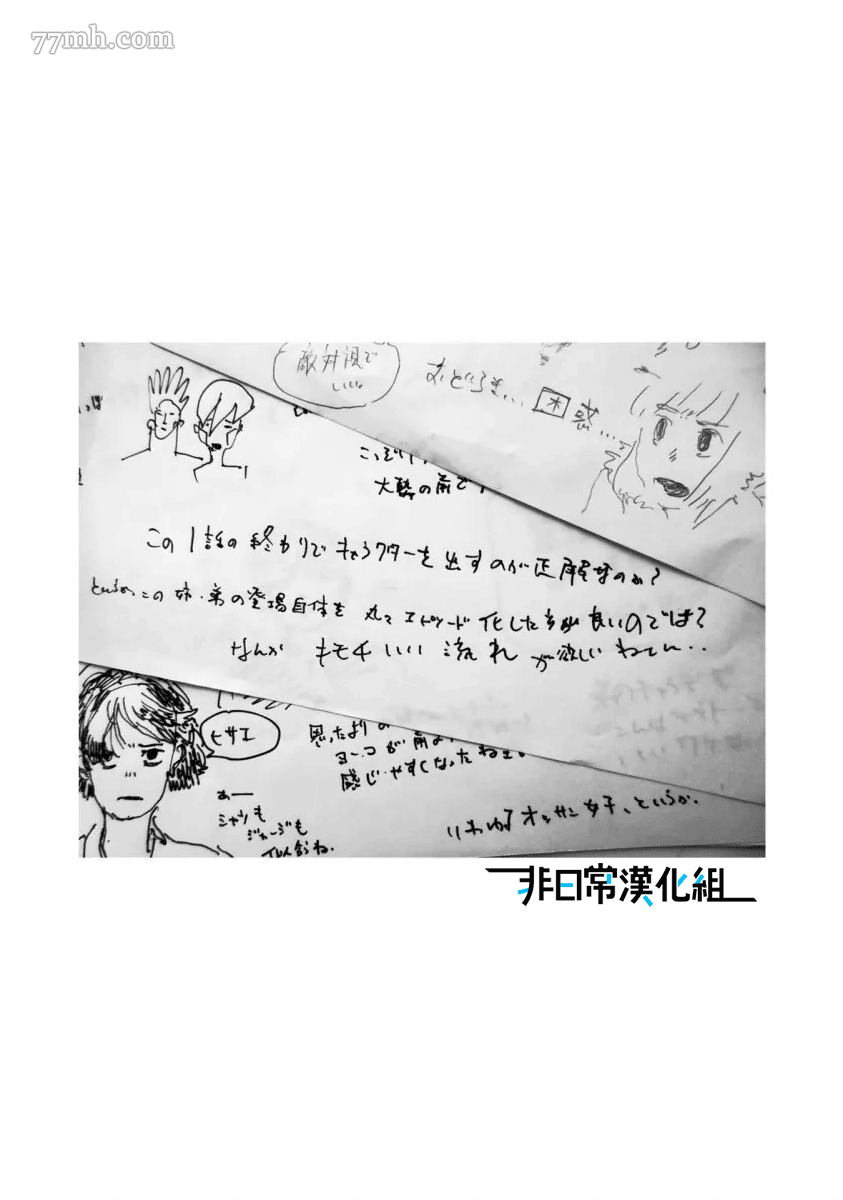 77mh.com
敵対視で
いい。
おどろき… 困惑…
っぱ
大勢の前で
この1話の終わりでキャラクターを出すのが正解なのか?
というかこの姉・弟の登場自体を 丸々エピソード化した方が良いのでは?
なんか キモチいい 流れ が欲しいねてん..
ヒサエ
思ったより
ヨーコが前
感じやすくなったねぇ。
あー
シャツも
ジャージも
似合うね.
いわゆるオッサン女子、というか.
非日常漢化組